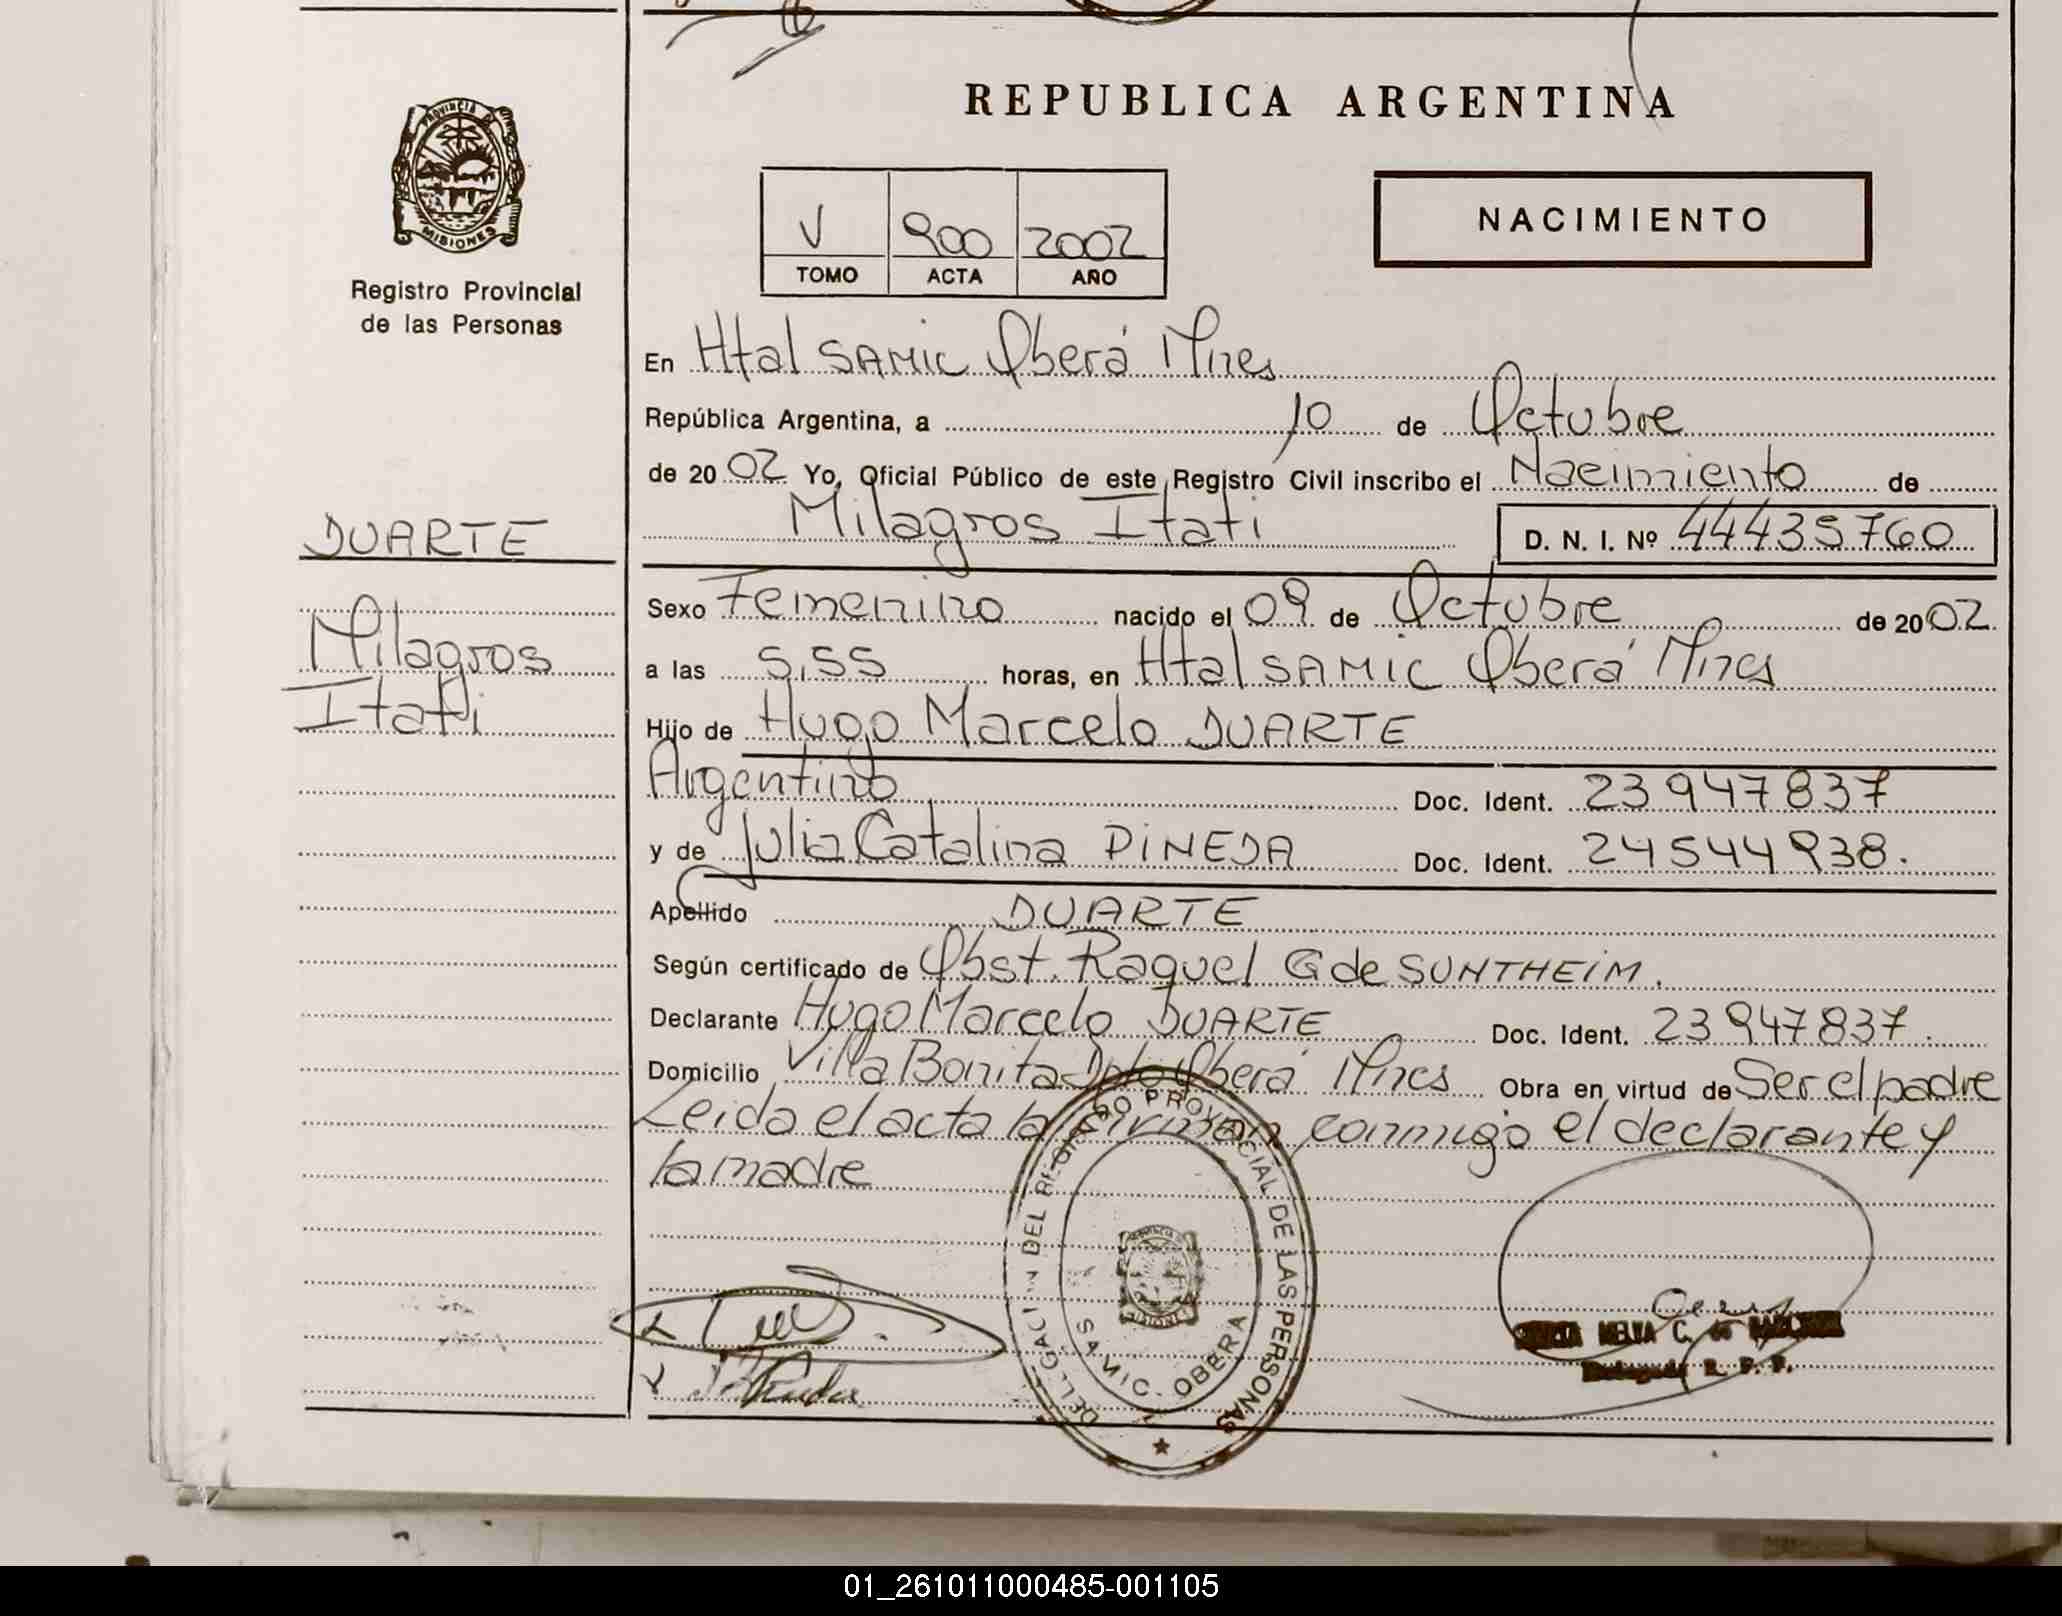 REPUBLICA ARGENTINA
PROVINCIA DE
MISIONES
Registro Provincial
de las Personas
V 900 2002
TOMO ACTA AÑO
NACIMIENTO
En Htal SAMIC Oberá Mnes
República Argentina, a 10 de Octubre
de 2002 Yo, Oficial Público de este Registro Civil inscribo el Nacimiento de
Milagros Itati D. N. I. Nº 44435760
DUARTE
Milagros
Itati
Sexo Femenino nacido el 09 de Octubre de 2002
a las 5,55 horas, en Htal SAMIC Oberá Mnes
Hijo de Hugo Marcelo DUARTE
Argentino Doc. Ident. 23947837
y de Julia Catalina PINEDA Doc. Ident. 24544938.
Apellido DUARTE
Según certificado de Obst. Raquel G de SUNTHEIM.
Declarante Hugo Marcelo DUARTE Doc. Ident. 23947837.
Domicilio Villa Bonita Dpto Oberá Mnes Obra en virtud de Ser el padre
Leida el acta la firman conmigo el declarante y
la madre
DELEGACION DEL REGISTRO PROVINCIAL DE LAS PERSONAS
SAMIC. OBERA
MELVA C. de
Delegada R. P. P.
01_261011000485-001105